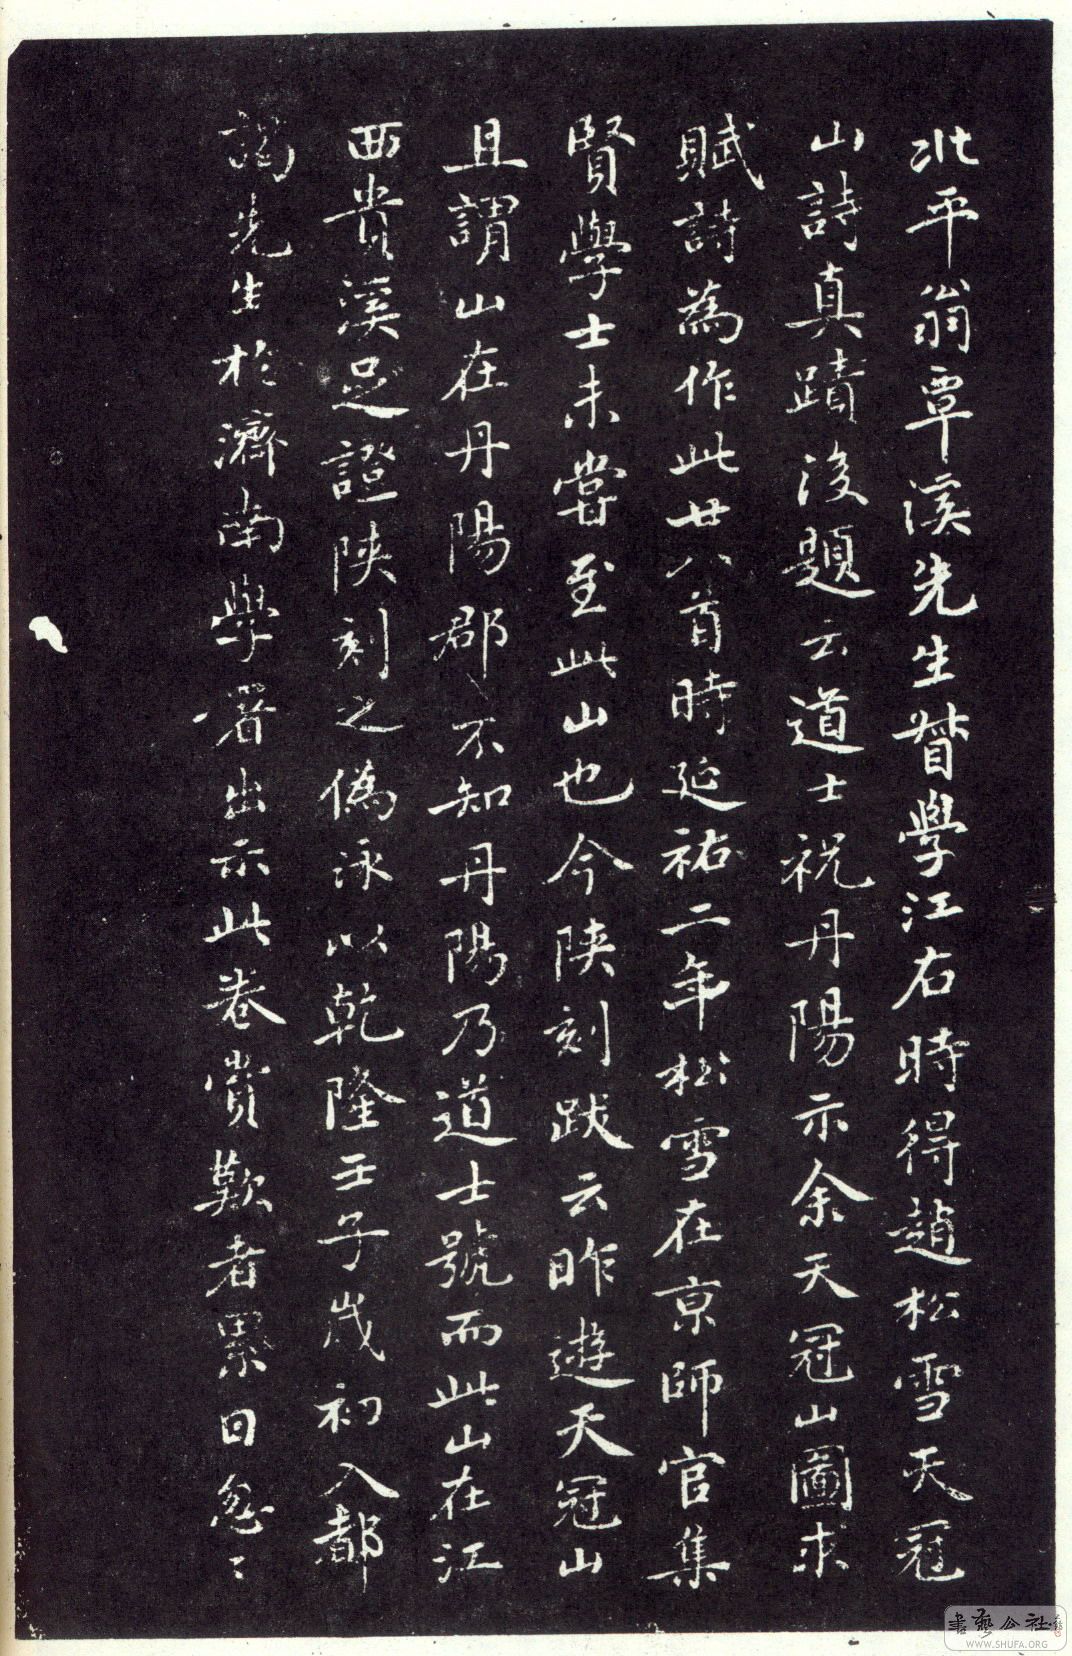 北平翁覃溪先生督學江右時得趙松雪天冠
山詩真蹟後題云道士祝丹陽示余天冠山圖求
賦詩為作此廿八首時延祐二年松雪在京師官集
賢學士未嘗至此山也今陝刻跋云昨遊天冠山
且謂山在丹陽郡不知丹陽乃道士號而此山在江
西貴溪足證陝刻之偽泳以乾隆壬子歲初入都
謁先生於濟南學署出示此卷賞歎者累日忽〻
書藝公社
WWW.SHUFA.ORG